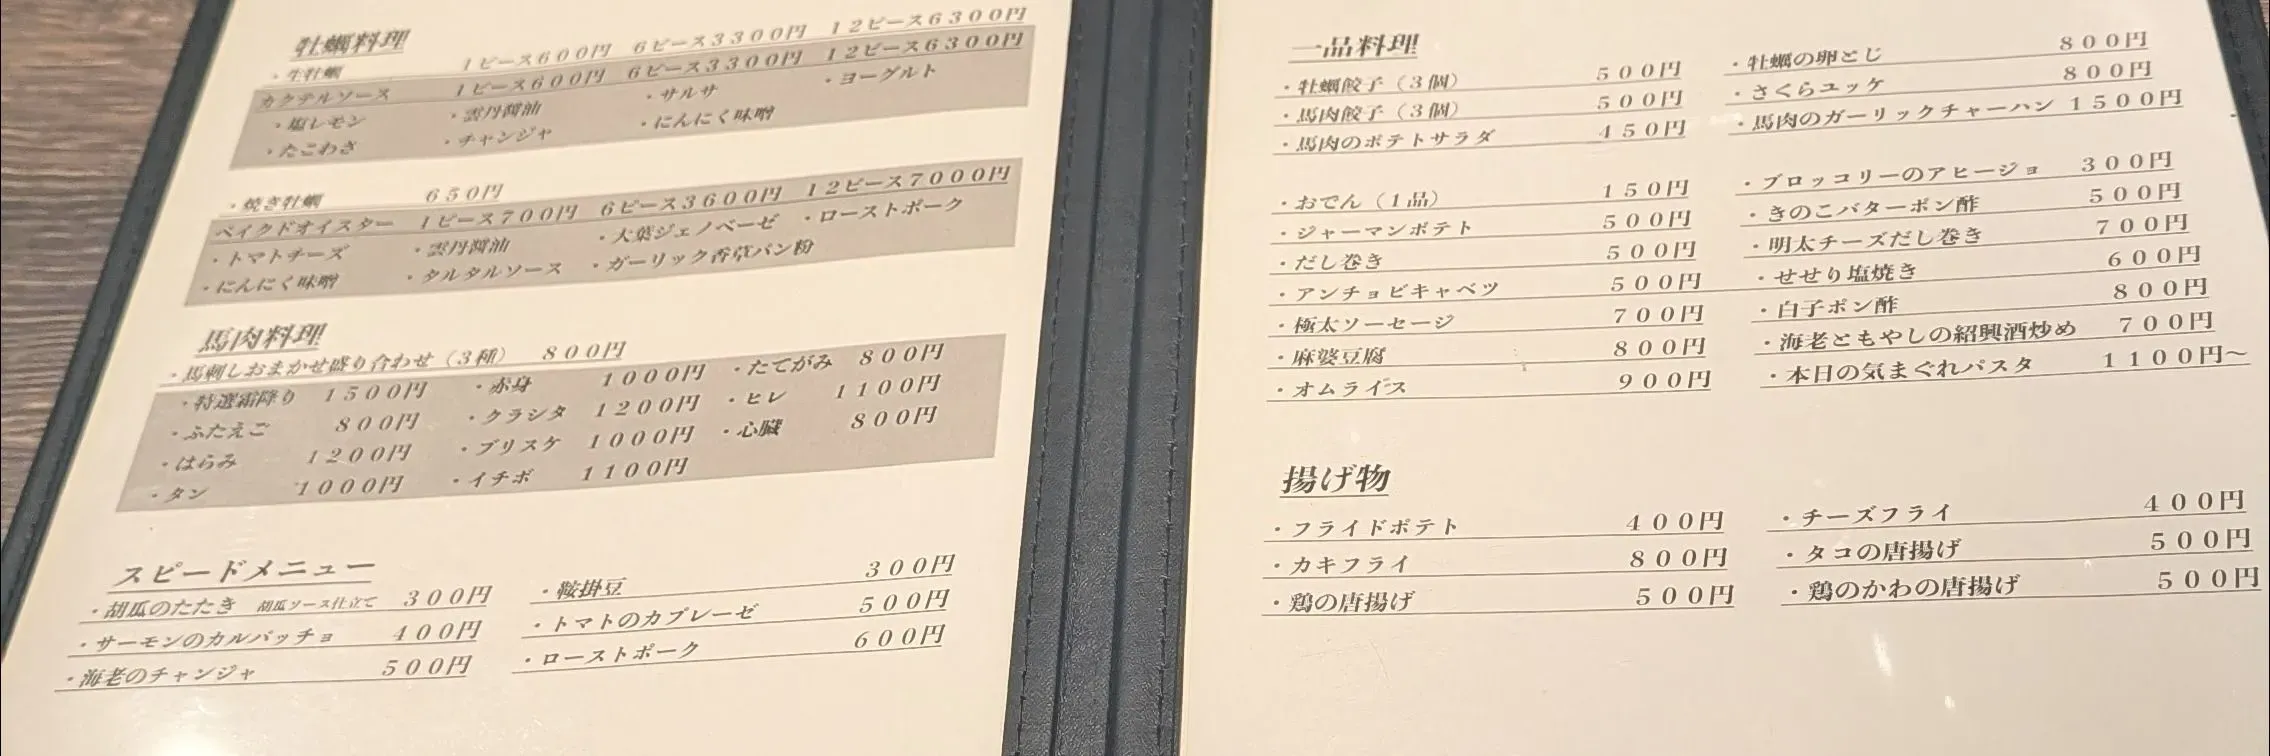 牡蠣料理
・生牡蠣 1ピース600円 6ピース3300円 12ピース6300円
カクテルソース 1ピース600円 6ピース3300円 12ピース6300円
・塩レモン ・雲丹醤油 ・サルサ ・ヨーグルト
・たこわさ ・チャンジャ ・にんにく味噌
・焼き牡蠣 650円
ベイクドオイスター 1ピース700円 6ピース3600円 12ピース7000円
・トマトチーズ ・雲丹醤油 ・大葉ジェノベーゼ ・ローストポーク
・にんにく味噌 ・タルタルソース ・ガーリック香草パン粉
馬肉料理
・馬刺しおまかせ盛り合わせ（3種） 800円
・特選霜降り 1500円 ・赤身 1000円 ・たてがみ 800円
・ふたえご 800円 ・クラシタ 1200円 ・ヒレ 1100円
・はらみ 1200円 ・ブリスケ 1000円 ・心臓 800円
・タン 1000円 ・イチボ 1100円
スピードメニュー
・胡瓜のたたき 胡瓜ソース仕立て 300円 ・鞍掛豆 300円
・サーモンのカルパッチョ 400円 ・トマトのカプレーゼ 500円
・海老のチャンジャ 500円 ・ローストポーク 600円
一品料理
・牡蠣餃子（3個） 500円 ・牡蠣の卵とじ 800円
・馬肉餃子（3個） 500円 ・さくらユッケ 800円
・馬肉のポテトサラダ 450円 ・馬肉のガーリックチャーハン 1500円
・おでん（1品） 150円 ・ブロッコリーのアヒージョ 300円
・ジャーマンポテト 500円 ・きのこバターポン酢 500円
・だし巻き 500円 ・明太チーズだし巻き 700円
・アンチョビキャベツ 500円 ・せせり塩焼き 600円
・極太ソーセージ 700円 ・白子ポン酢 800円
・麻婆豆腐 800円 ・海老ともやしの紹興酒炒め 700円
・オムライス 900円 ・本日の気まぐれパスタ 1100円～
揚げ物
・フライドポテト 400円 ・チーズフライ 400円
・カキフライ 800円 ・タコの唐揚げ 500円
・鶏の唐揚げ 500円 ・鶏のかわの唐揚げ 500円